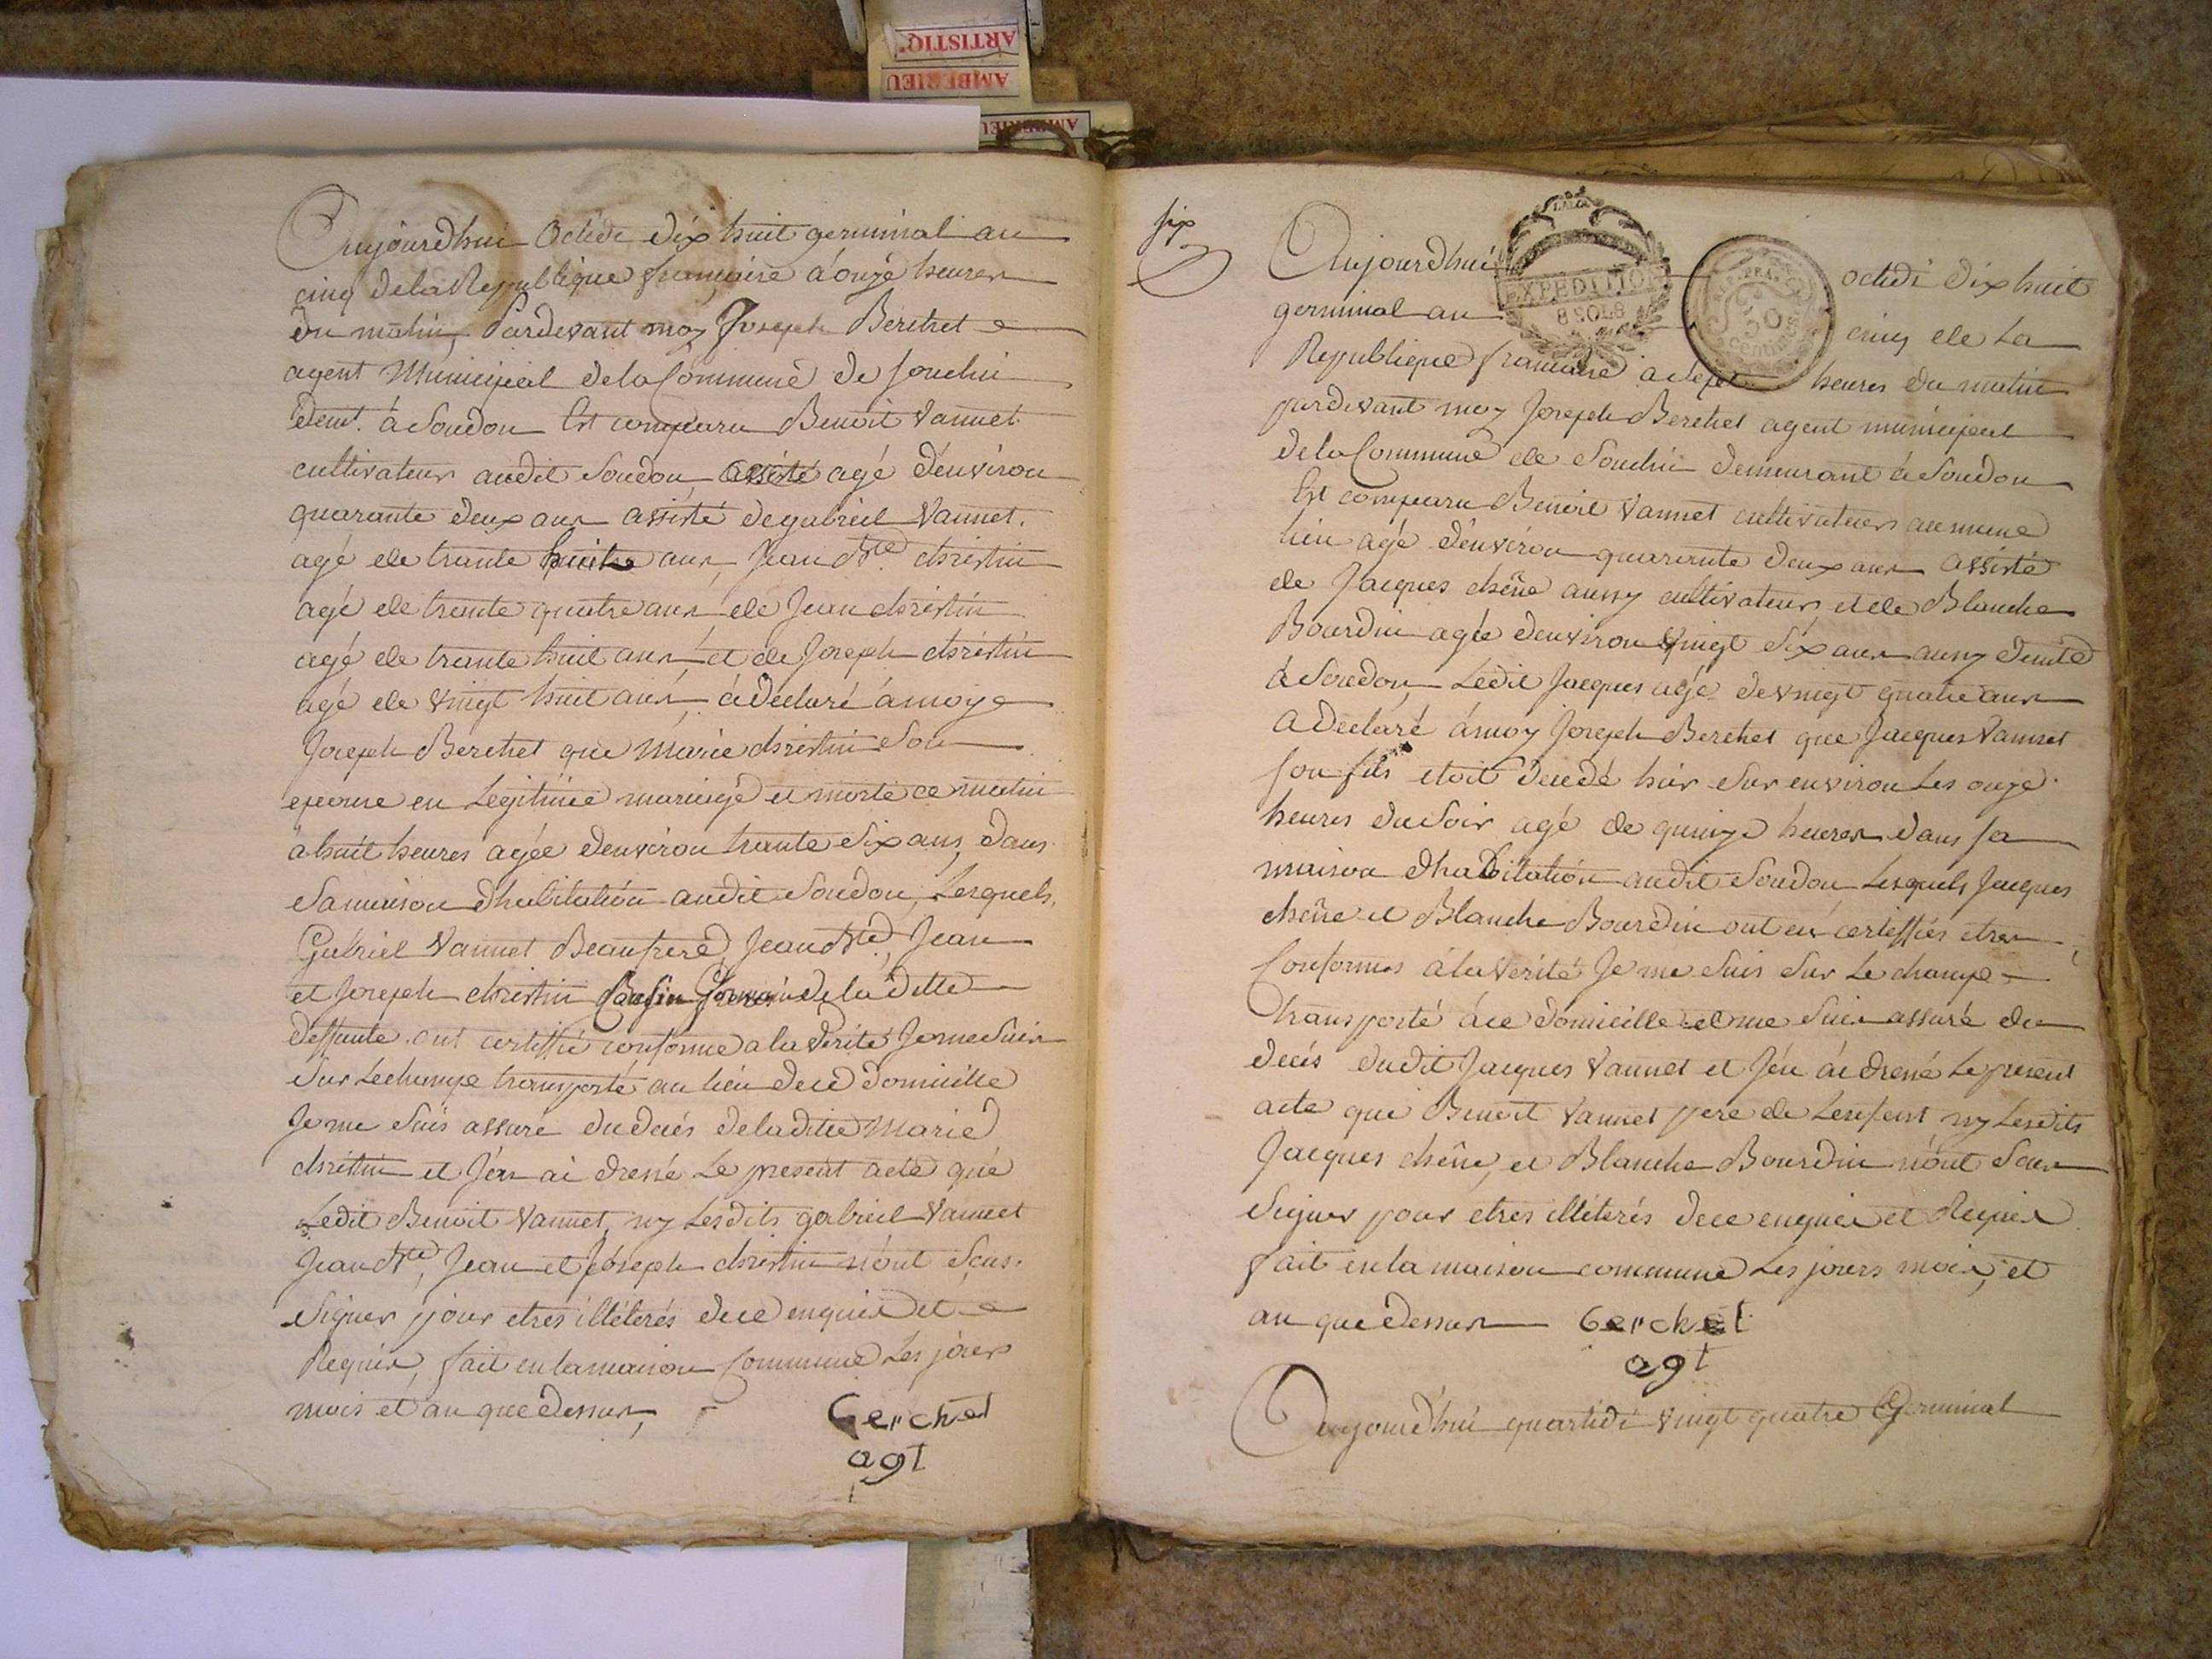 ARTISTIQ
AMBERIEU
AMBERIEU
Aujourdhui Octidi dix huit germinal an
cinq de la Republique française à onze heures
du matin, Pardevant moy Joseph Berchet
agent Municipal de la Commune de Souclin
demt. à Soudon Est comparu Benoit Vannet
cultivateur audit Soudon agé d'environ
quarante deux ans assisté de gabriel Vannet.
agé de trante huit ans, Jean Bte christin
agé de trante quatre ans de Jean christin
agé de trante huit ans, et de Joseph christin
agé de vingt huit ans, à déclaré à moy
Joseph Berchet que Marie christin Son
epouse en Legitime mariage et morte ce matin
à huit heures agée d'environ trante Six ans, dans
Sa maison d'habitation audit Soudon, Lesquels,
Gabriel Vannet Beaufrere, Jean Bte, Jean
et Joseph christin Cousin Germain de la ditte
deffunte ont certiffié conforme a la verité Je me Suis
Sur Le champ transporté au lieu de ce domicille
Je me Suis assuré du décés de la ditte Marie
christin et J'en ai dressé Le present acte que
Ledit Benoit Vannet, ny Lesdits gabriel Vannet
Jean Bte, Jean et Joseph christin n'ont Scus.
Signer pour etres illéterés de ce enquis et
Requis, fait en la maison Commune Les jours
mois et an que dessus,
Berchet
agt
six
Aujourdhui octidi dix huit
EXPEDITION
8 SOLS
REP. FRA.
50
centimes
germinal an cinq de La
Republique française à Sept heures du matin
pardevant moy Joseph Berchet agent municipal
de la Commune de Souclin demeurant à Soudon
Est comparu Benoit Vannet cultivateur au meme
lieu agé d'environ quarante deux ans assisté
de Jacques chêne aussy cultivateur et de Blanche
Bourdin agée d'environ vingt Six ans aussy demte
à Soudon, Ledit Jacques agé de vingt quatre ans
a declaré à moy Joseph Berchet que Jacques Vannet
son fils etoit decedé hier Sur environ Les onze
heures du Soir agé de quinze heures dans sa
maison d'habitation audit Soudon Lesquels Jacques
chêne et Blanche Bourdin ont certiffiés etres
Conformes à la Verité Je me Suis Sur Le champ
transporté à ce domicille et me Suis assuré du
decés dudit Jacques Vannet et J'en ai dressé Le present
acte que Benoit Vannet pere de Lenfent ny Lesdits
Jacques chêne, et Blanche Bourdin n'ont Scus
Signer pour etres illéterés de ce enquis et Requis
fait en la maison commune Les jours mois, et
an que dessus Berchet
agt
Aujourd'hui quartidi vingt quatre Germinal